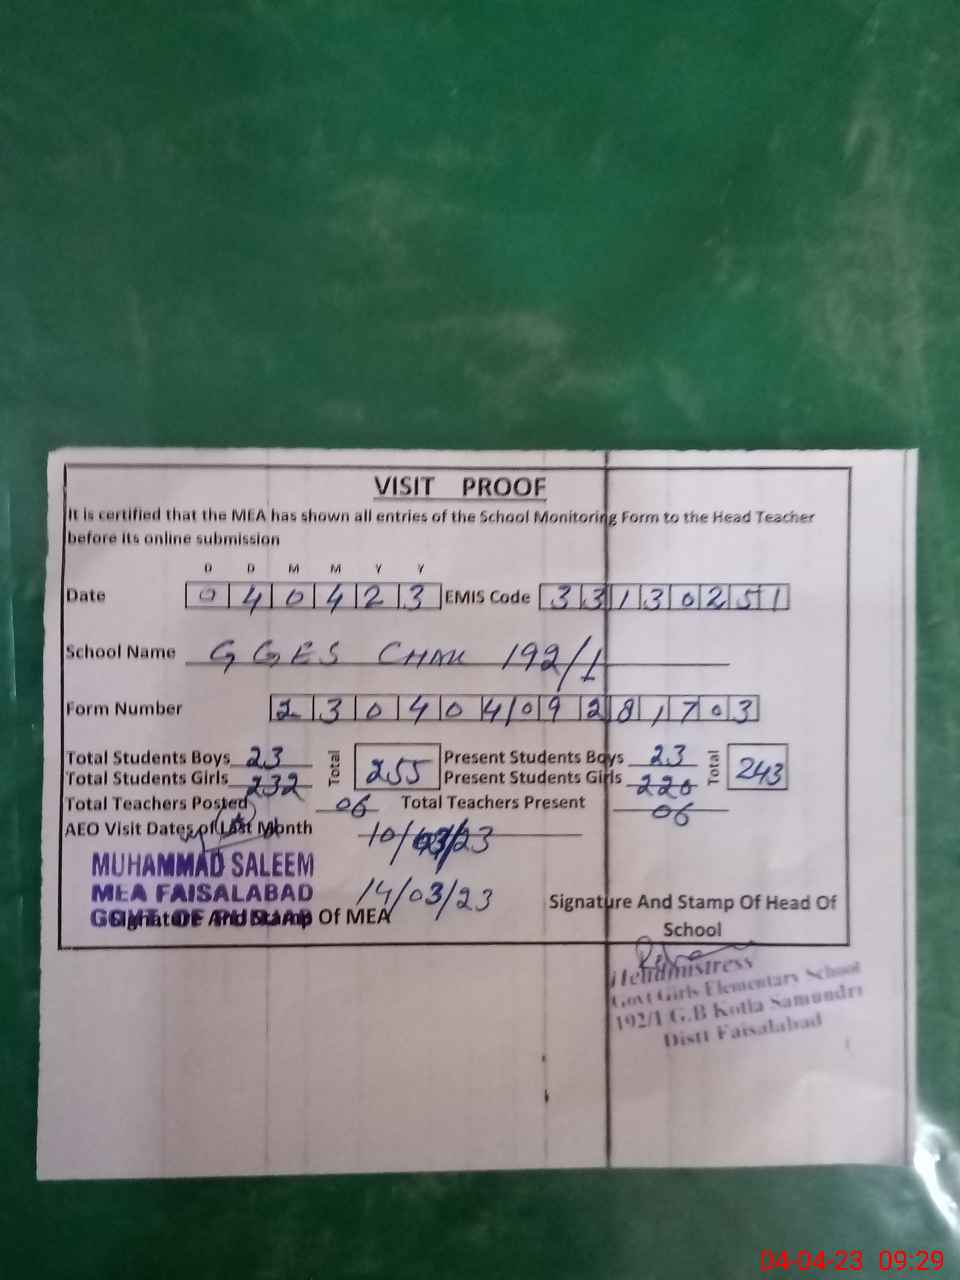 VISIT PROOF
It is certified that the MEA has shown all entries of the School Monitoring Form to the Head Teacher
before its online submission
D D M M Y Y
Date 0 4 0 4 2 3 EMIS Code 3 3 1 3 0 2 5 1
School Name GGES CHAK 192/1
Form Number 2 3 0 4 0 4 0 9 2 8 1 7 0 3
Total Students Boys 23 Total 255 Present Students Boys 23 Total 243
Total Students Girls 232 Present Students Girls 220
Total Teachers Posted 06 Total Teachers Present 06
AEO Visit Dates of Last Month 10/03/23
MUHAMMAD SALEEM
MEA FAISALABAD 14/03/23
GOVT. OF PUNJAB
Signature And Stamp Of MEA
Signature And Stamp Of Head Of
School
Headmistress
Govt Girls Elementary School
192/1 G.B Kotla Samundri
Distt Faisalabad
04-04-23 09:29